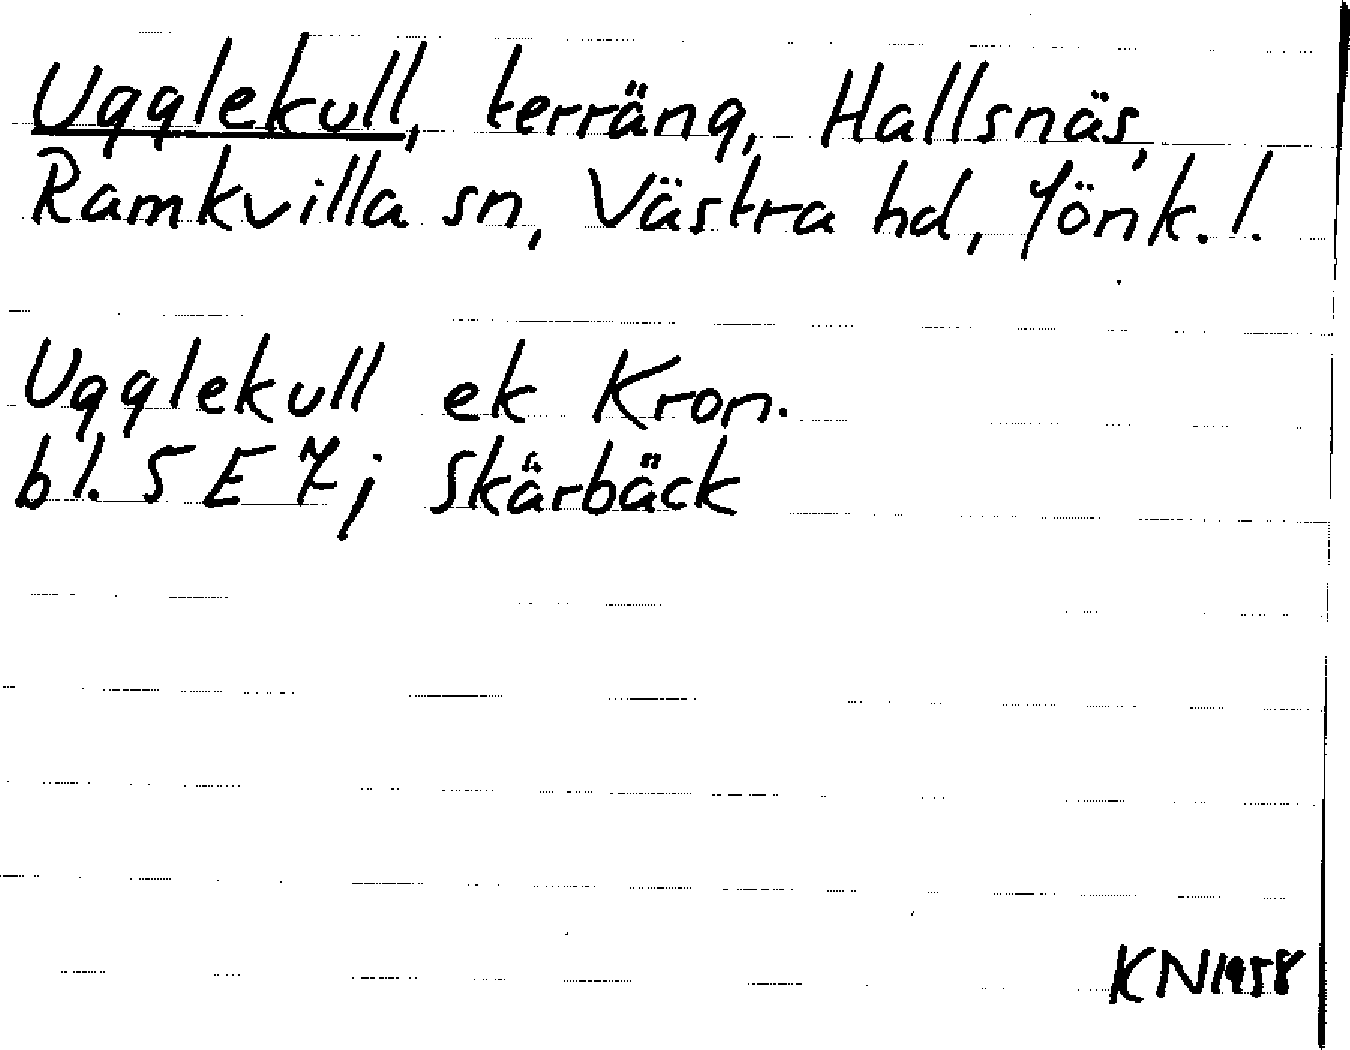 Ugglekull, terräng, Hallsnäs,
Ramkvilla sn, Västra hd, Jönk. l.
Ugglekull ek Kron.
bl. 5 E 7 j Skärbäck
KN 1958